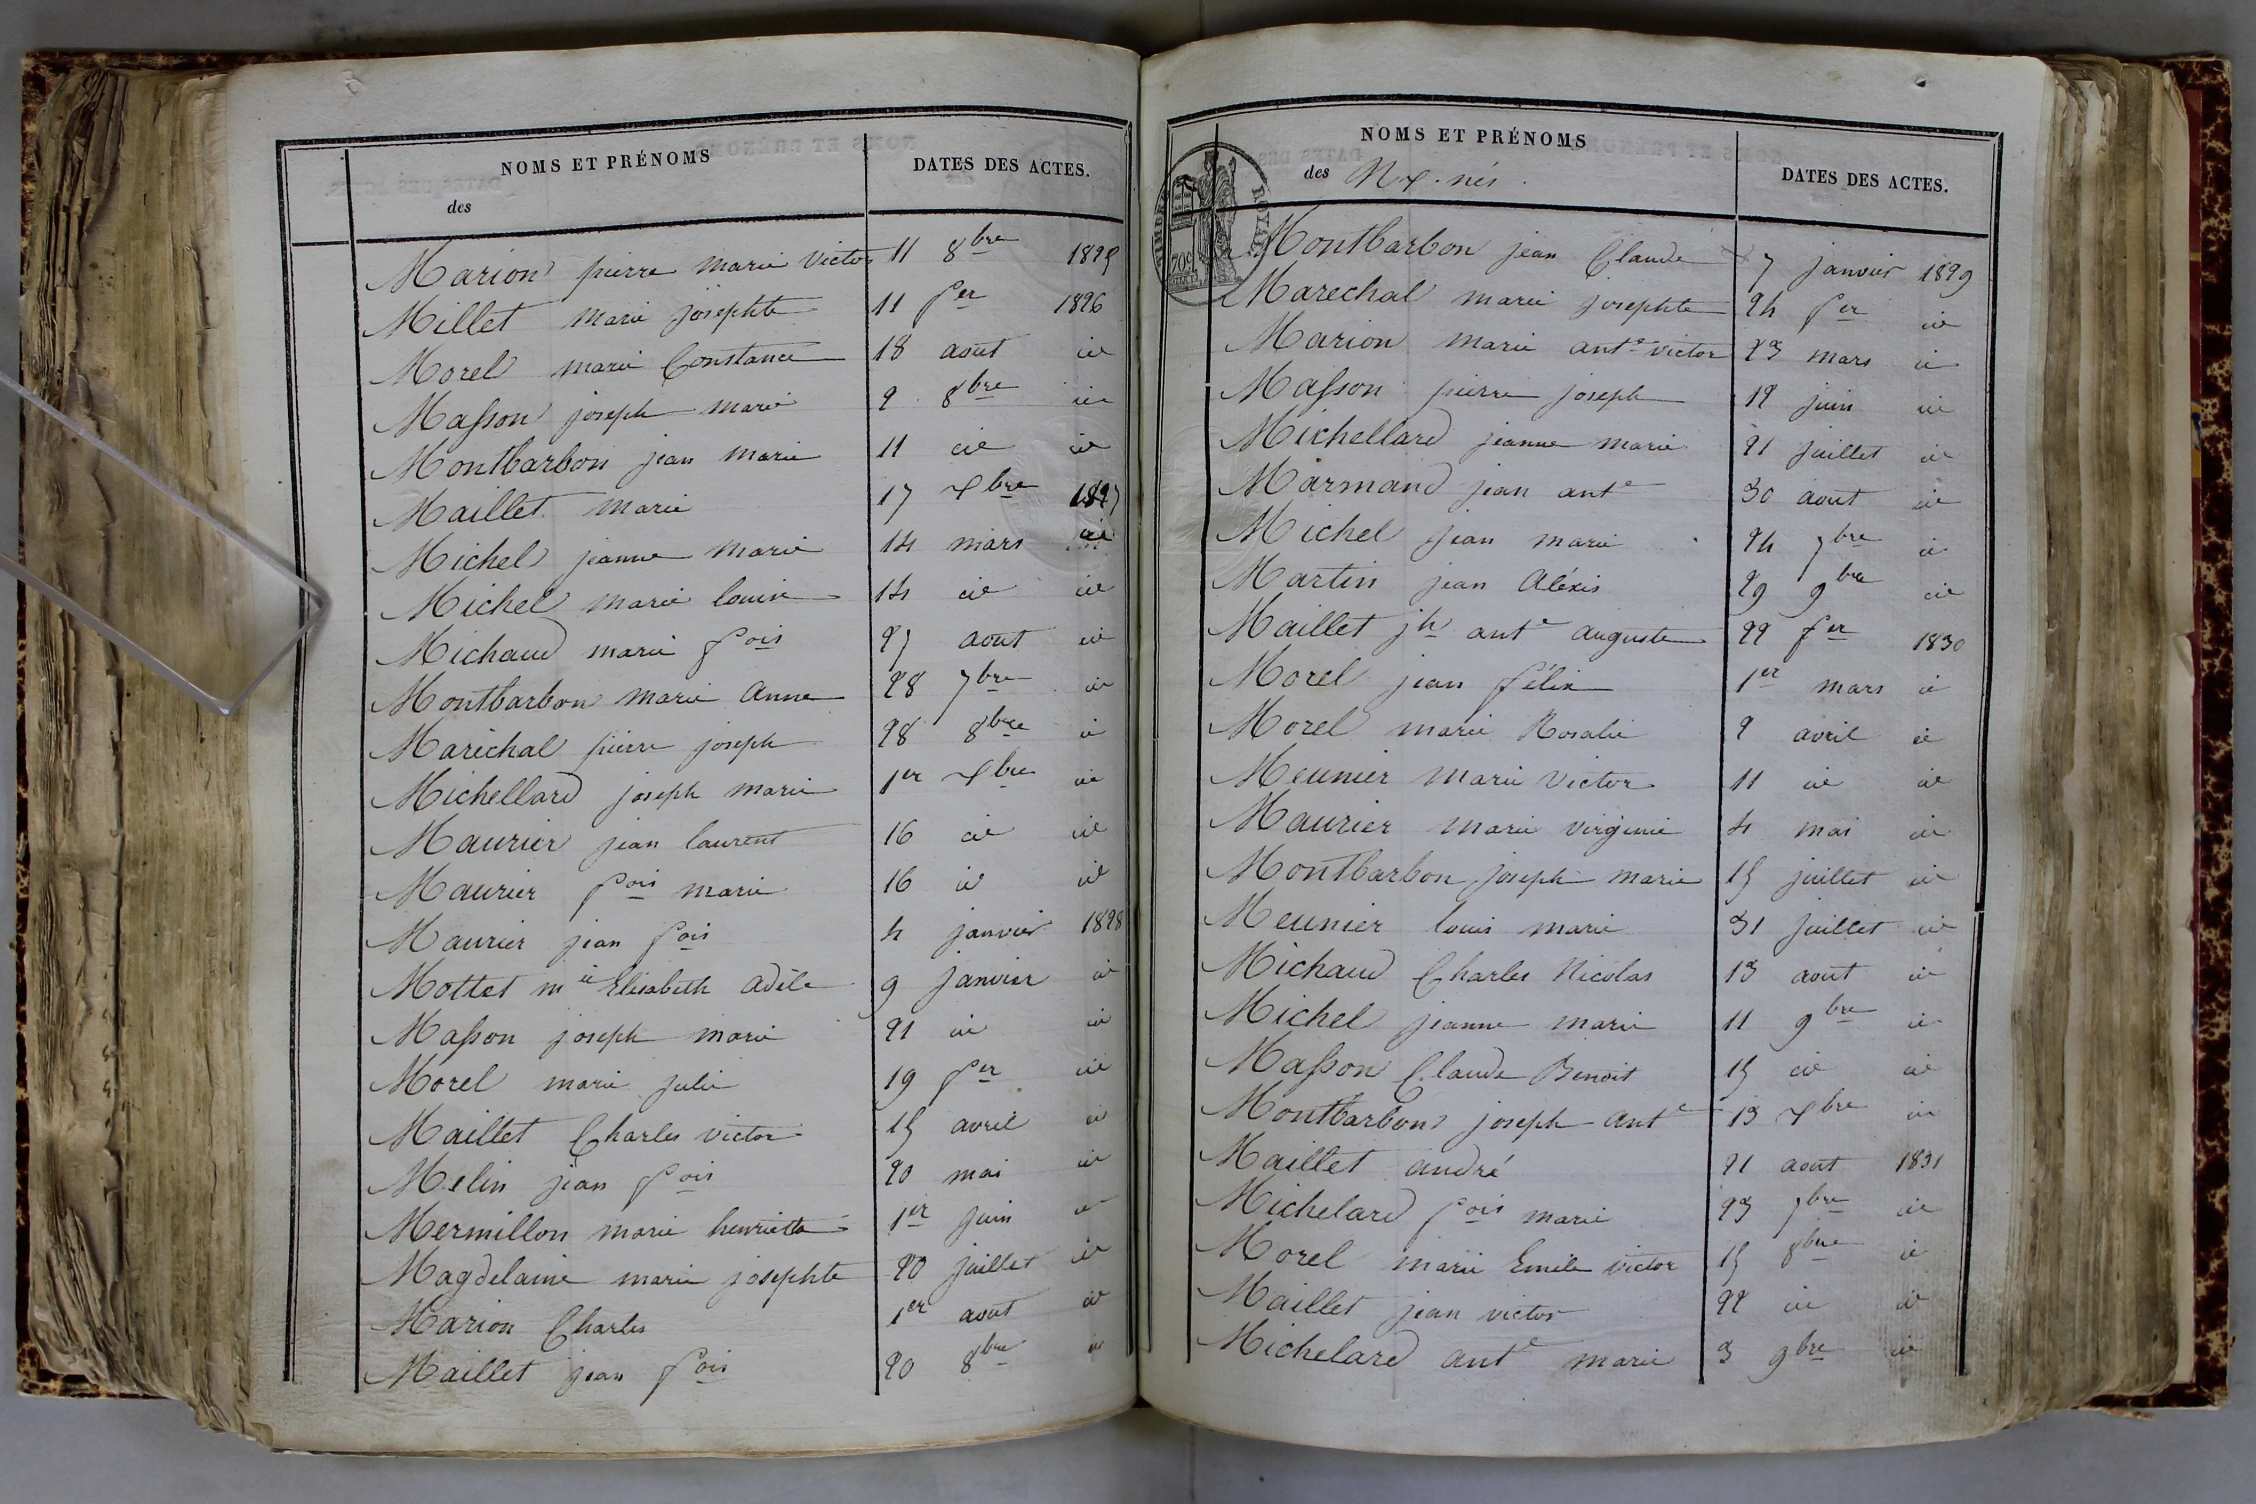 NOMS ET PRÉNOMS
des
DATES DES ACTES.
Marion pierre marie victor 11 8bre 1825
Millet marie josephte 11 fer 1826
Morel marie Constance 18 aout id
Masson joseph marie 2 8bre id
Montbarbon jean marie 11 id id
Maillet marie 17 Xbre 1827
Michel jeanne marie 14 mars id
Michel marie louise 14 id id
Michaud marie fois 27 aout id
Montbarbon marie Anne 28 7bre id
Marichal pierre joseph 28 8bre id
Michellard joseph marie 1er Xbre id
Maurier jean laurent 16 id id
Maurier fois marie 16 id id
Maurier jean fois 4 janvier 1828
Mottet mie Elisabeth adèle 9 janvier id
Masson joseph marie 21 id id
Morel marie julie 19 fer id
Maillet Charles victor 15 avril id
Melin jean fois 20 mai id
Mermillon marie henriette 1er juin id
Magdelaine marie josephte 20 juillet id
Marion Charles 1er aout id
Maillet jean fois 20 8bre id
NOMS ET PRÉNOMS
des nés
DATES DES ACTES.
TIMBRE ROYAL
70c
Montbarbon jean Claude 7 janvier 1829
Marechal marie josephte 24 fer id
Marion marie ante victor 23 mars id
Masson pierre joseph 12 juin id
Michellard jeanne marie 21 juillet id
Marmand jean ante 30 aout id
Michel jean marie 24 7bre id
Martin jean Aléxis 29 9bre id
Maillet jh ante auguste 22 fer 1830
Morel jean félix 1er mars id
Morel marie Rosalie 2 avril id
Meunier marie victor 11 id id
Maurier marie virginie 4 mai id
Montbarbon joseph marie 15 juillet id
Meunier louis marie 31 juillet id
Michaud Charles Nicolas 13 aout id
Michel jeanne marie 11 9bre id
Masson Claude Benoit 15 id id
Montbarbon joseph ante 13 Xbre id
Maillet andré 21 aout 1831
Michelard fois marie 23 7bre id
Morel marie Emile victor 15 8bre id
Maillet jean victor 22 id id
Michelard ante marie 3 9bre id